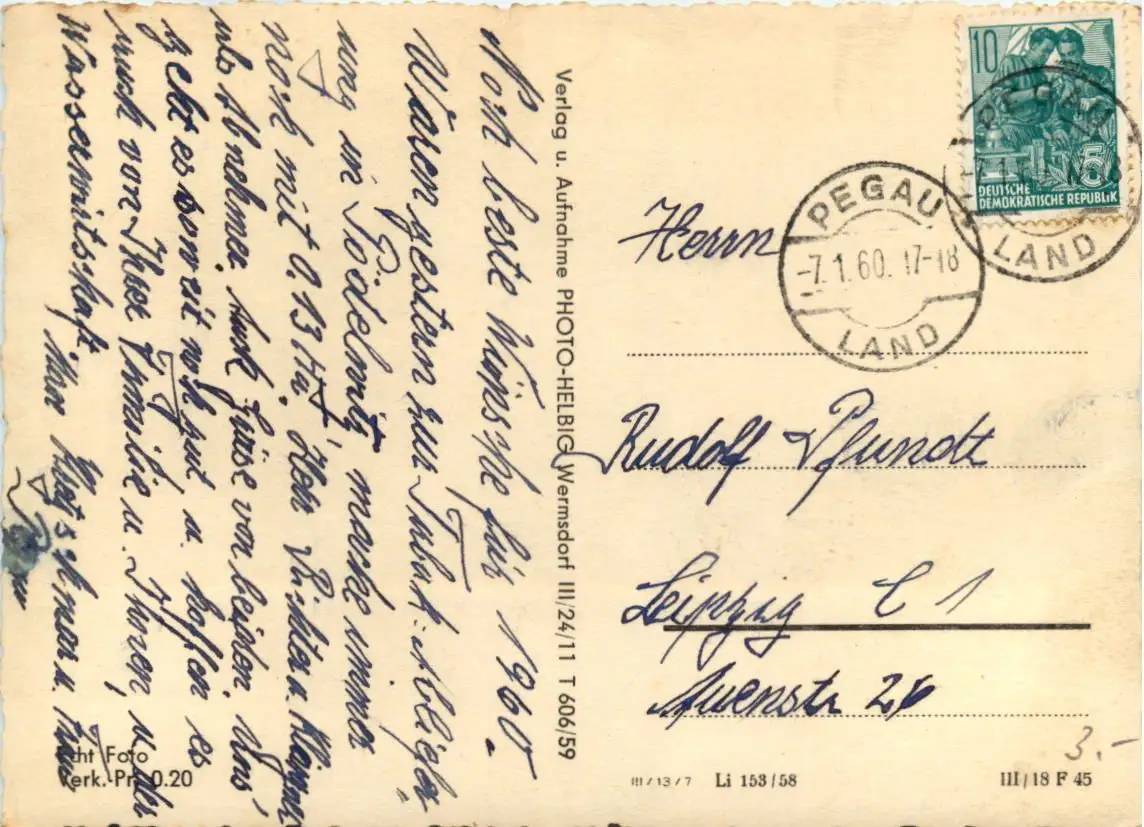 Noch beste Wünsche für 1960.
Waren gestern zur Tabak-Abliefer
ung in Pödelwitz, mache immer
noch mit 0,13 Ha. Herr Richter u.
als Abnehmer. Auch Grüße von beiden. Uns
geht es soweit noch gut u. hoffen es
auch von Ihrer Familie u. Ihnen, u. der
Wasserwirtschaft. Ihr u. Frau
Verlag u. Aufnahme PHOTO-HELBIG, Wermsdorf III/24/11 T 606/59
10
5
DEUTSCHE
DEMOKRATISCHE REPUBLIK
PEGAU
LAND
PEGAU
-7.1.60.17-18
LAND
Herrn
Rudolf Pfundt
Leipzig C 1
Auenstr 26
3.-
Echt Foto
Verk.-Pr. 0.20
III/13/7 Li 153/58
III/18 F 45